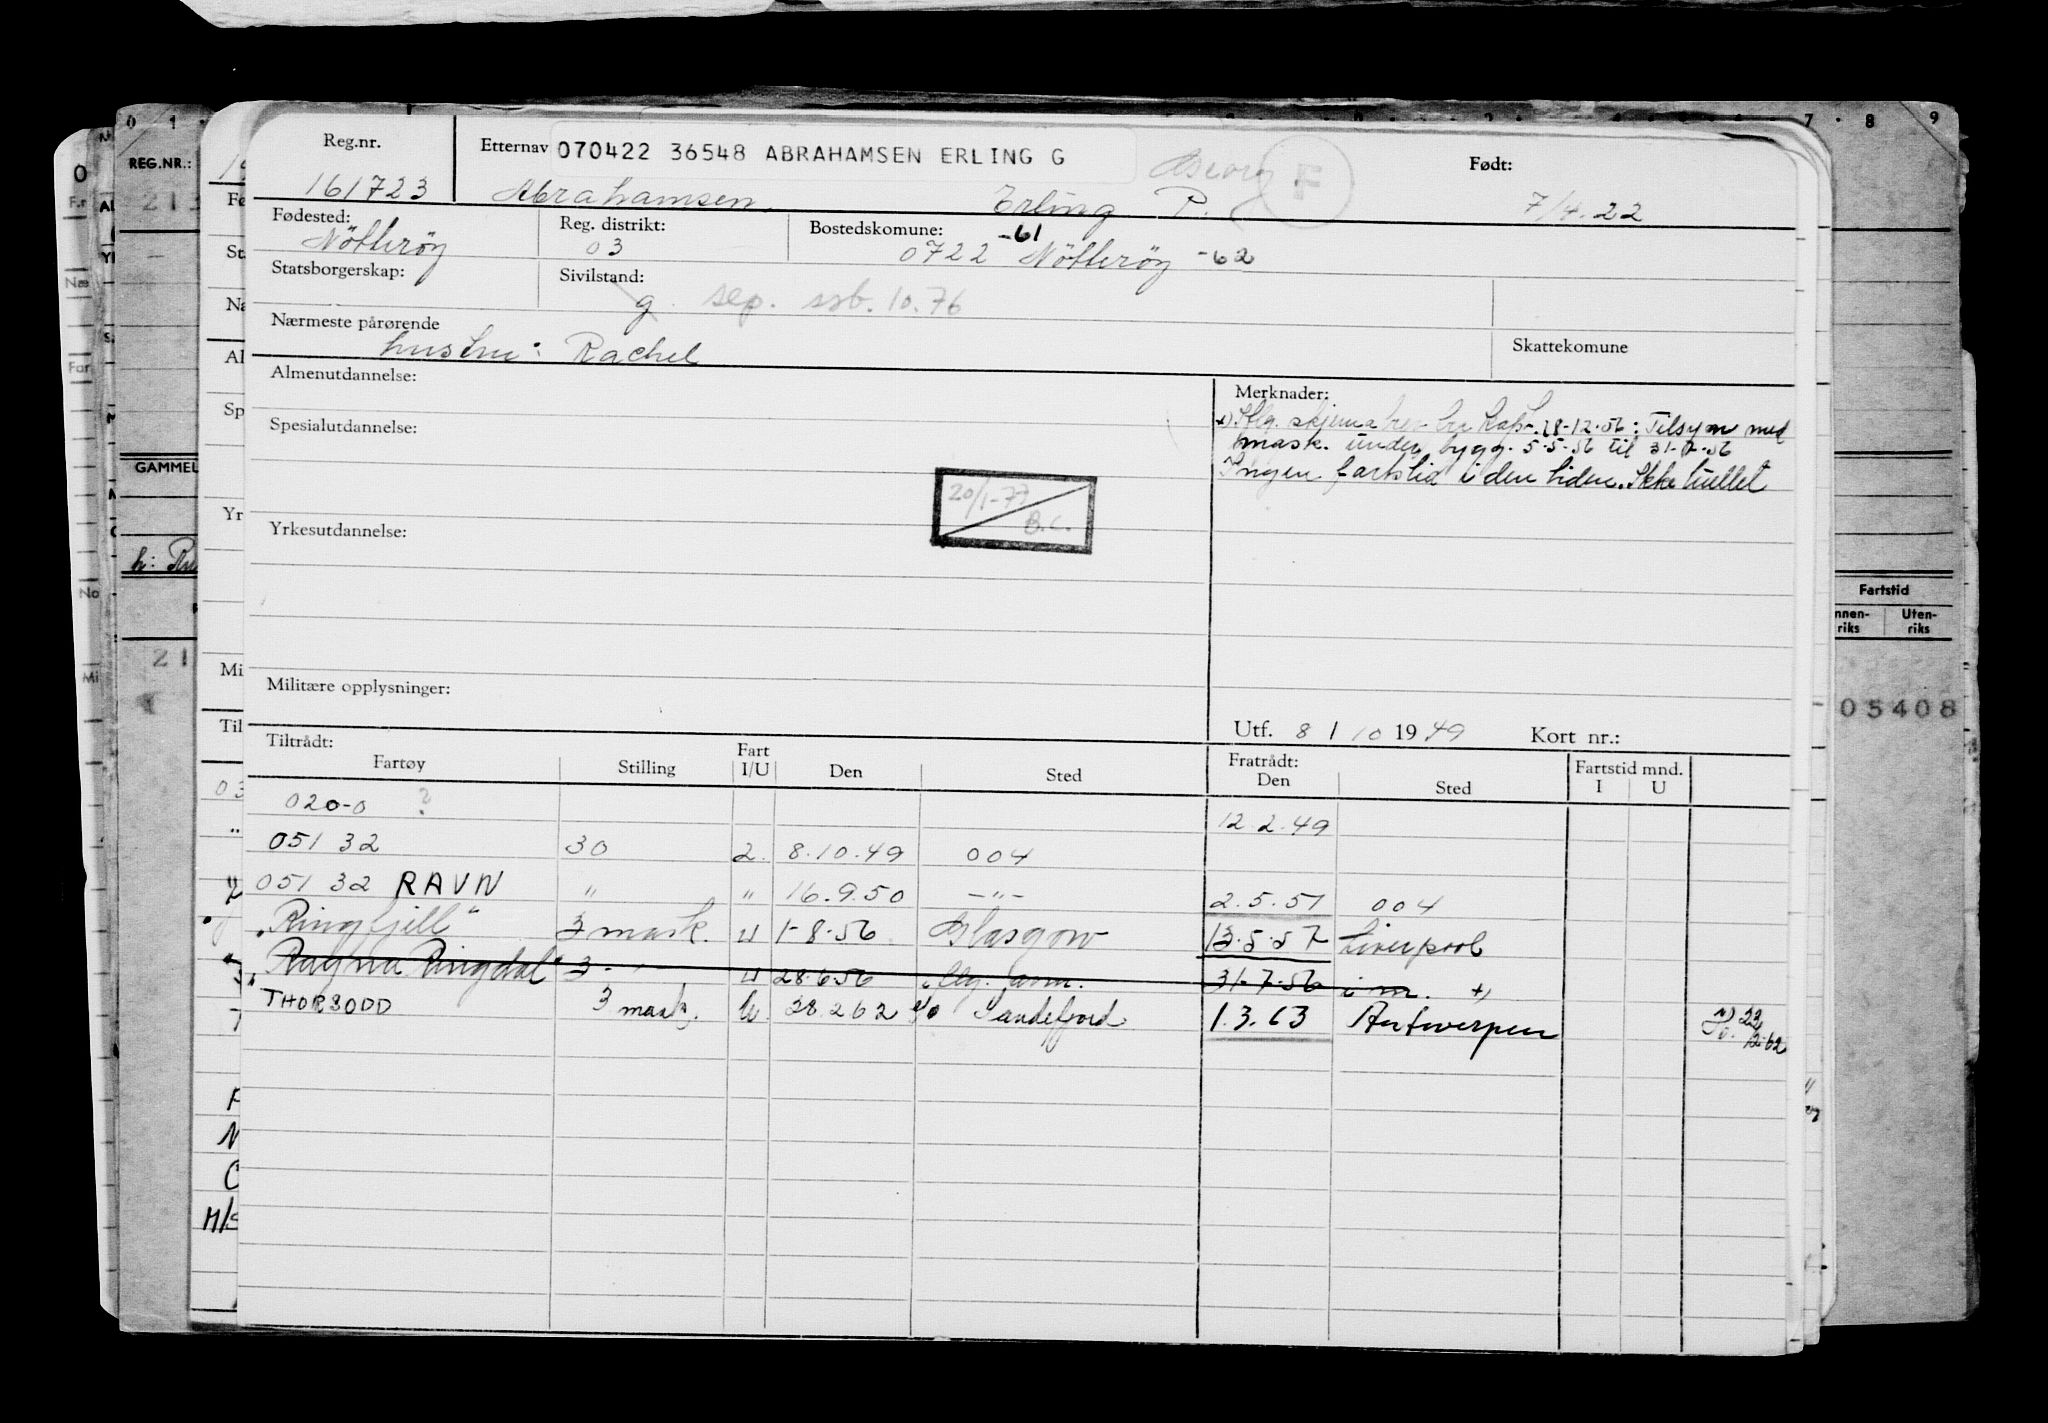 Reg.nr. Etternavn 070422 36548 ABRAHAMSEN ERLING G Georg F Født:
161723 Abrahamsen Erling P. 7/4.22
Fødested: Reg. distrikt: Bostedskomune: -61
Nötteröy 03 0722 Nötteröy -62
Statsborgerskap: Sivilstand:
g sep. ssb. 10.76
Nærmeste pårørende
hustru: Rachel Skattekomune
Almenutdannelse: Merknader:
x) Iflg. skjema 28-12-56: Tilsyn med
Spesialutdannelse: mask. under bygg. 5-5-56 til 31-7-56
Ingen fartstid i den tiden. Ikke
20/1-77
B.C.
Yrkesutdannelse:
Militære opplysninger:
Utf. 8 / 10 1949 Kort nr.:
Tiltrådt: Fart Fratrådt: Fartstid mnd.
Fartøy Stilling I/U Den Sted Den Sted I U
020-0 ? 12.2.49
051 32 30 2. 8.10.49 004
051 32 RAVN " " 16.9.50 -"- 2.5.51 004
"Ringfjell" 3 mask. U 1-8-56 Glasgow 13.5.57 Liverpool
"Ragna Ringdal" 3 - " - U 28.6.56 31-7-56 i m. x)
THORSODD 3 mask. U. 28.2.62 Sandefjord 1.3.63 Antwerpen
REG.NR.:
GAMMEL
Fartstid
Innen-
riks
Uten-
riks
05408
0 1 7 8 9
21
M/S